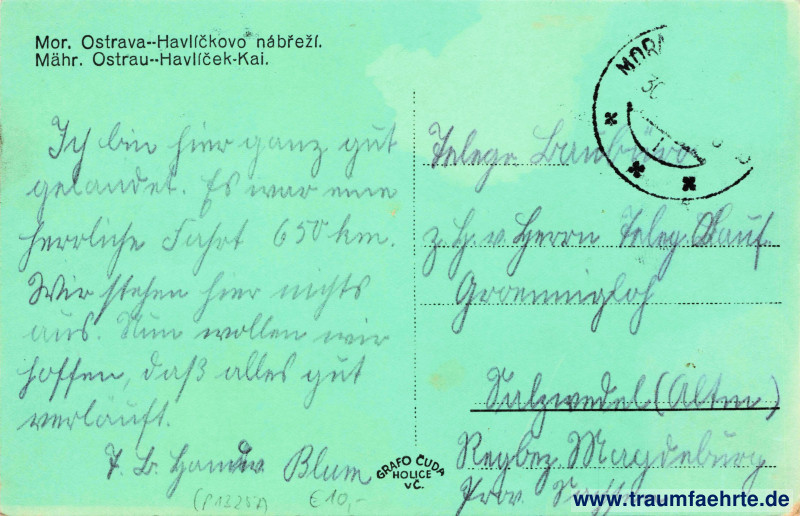 Mor. Ostrava--Havlíčkovo nábřeží.
Mähr. Ostrau--Havlíček-Kai.
Ich bin hier ganz gut
gelandet. Es war eine
herrliche Fahrt 650 km.
Wir stehen hier nichts
aus. Nun wollen wir
hoffen, daß alles gut
verläuft.
Blum
Telegr. Baubüro
z. H. v. Herrn Teleg.
Salzwedel (Altm)
Regbez. Magdeburg
Prov. Sachsen
MORA
30
GRAFO ČUDA
HOLICE
v Č.
€10,-
www.traumfaehrte.de